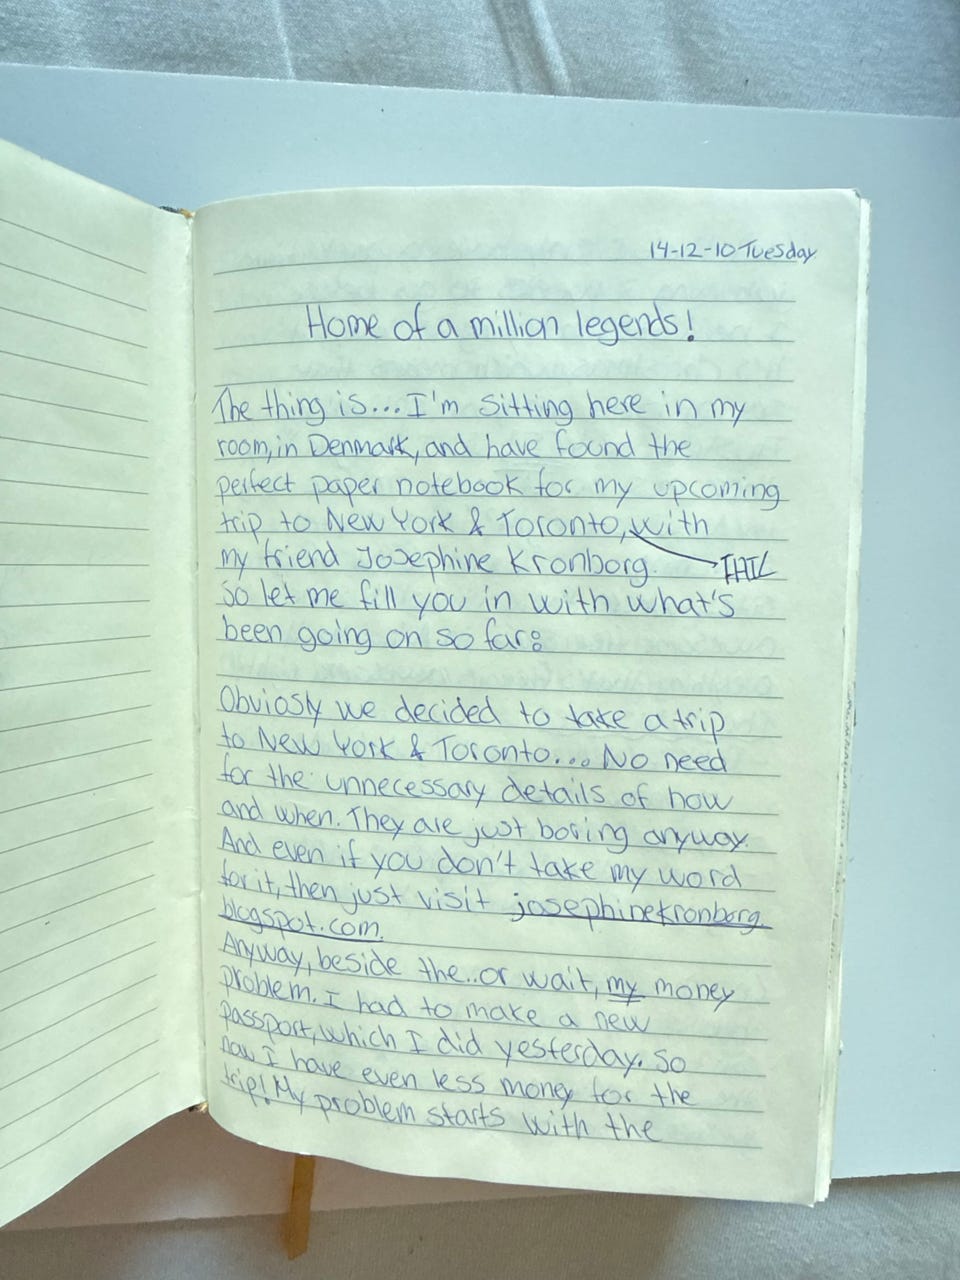 14-12-10 Tuesday
Home of a million legends!
The thing is... I'm sitting here in my
room, in Denmark, and have found the
perfect paper notebook for my upcoming
trip to New York & Toronto, with
my friend Josephine Kronborg.
FAIL
So let me fill you in with what's
been going on so far:
Obviosly we decided to take a trip
to New York & Toronto... No need
for the unnecessary details of how
and when. They are just boring anyway.
And even if you don't take my word
for it, then just visit josephinekronborg.
blogspot.com.
Anyway, beside the.. or wait, my money
problem. I had to make a new
passport, which I did yesterday. So
now I have even less money for the
trip! My problem starts with the